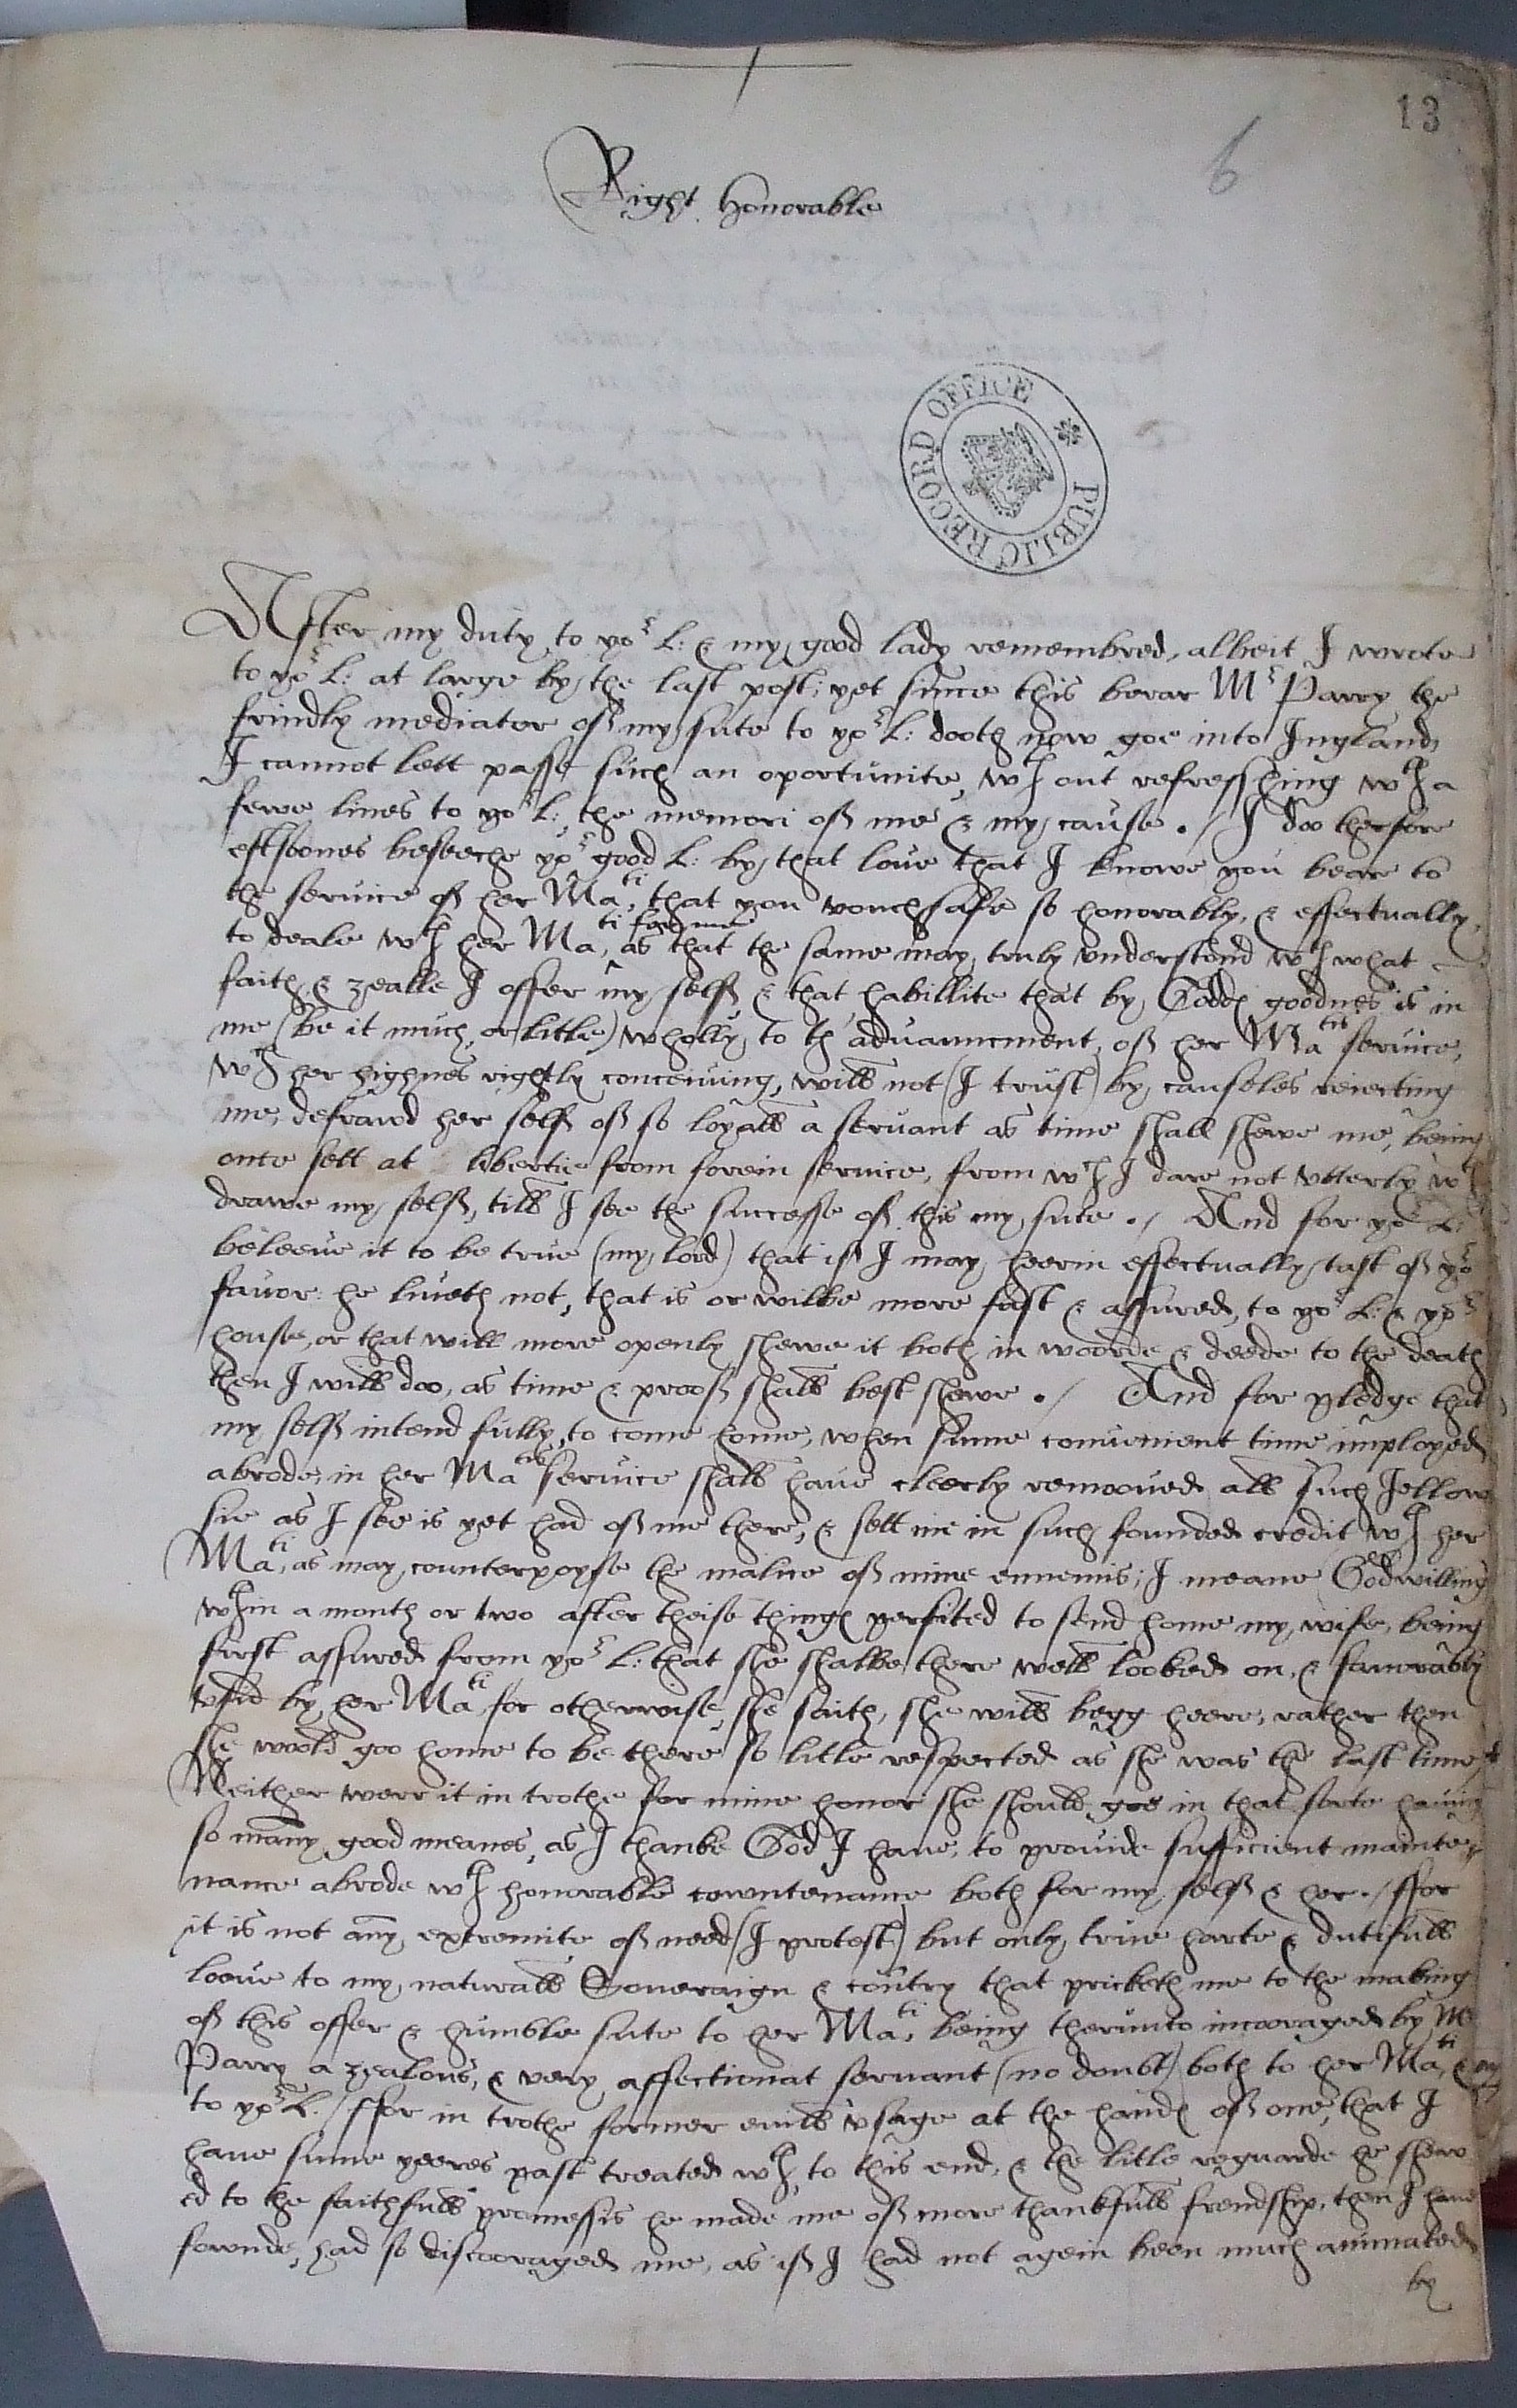 13
6
Right Honorable
PUBLIC RECORD OFFICE
After my duty to yor L: & my good lady remembred, albeit I wrote
to yor L: at large by the last post; yet since this berar Mr Parry the
frindly mediator of my sute to yor L: dooth now goe into Ingland,
I cannot lett passe such an oportunite, wth out refresshing wth a
fewe lines to yor L:, the memori of me & my cause ./ I doo therfore
eftsoones beseeche yor good L: by that loue that I knowe you bear to
the seruice of her Mati, that you vouchsafe so honorably, & effectually,
to deale wth her Mati for me, as that the same may truly vnderstand wth what
faith & zealle I offer my self & that habillite that by Godds goodnes is in
me (be it much, or litle) wholly to th'aduauncment, of her Matis seruice,
wch her highnes rightly conceiuing, will not (I trust) by causeles reiecting
me, defrawd her self of so loyall a seruant as time shall shewe me, being
once sett at libertie from forein seruice, from wch I dare not vtterly wth
drawe my self, till I see the successe of this my sute ./ And for yor L:
beleeue it to be true (my lord) that if I may heerin effectually tast of yor
fauor: he liueth not, that is or wilbe more fast & assured, to yor L: & yor
house, or that will more openly shewe it both in woorde & deede to the death
then I will doo, as time & proof shall best shewe ./ And for pledge that
my self intend fully, to come home, when sume conuenient time imployed
abrode, in her Matis seruice shall haue cleerly remooued all such Jellow
sie as I see is yet had of me there, & sett me in such founded credit wth her
Mati, as may counterpoyse the malice of mine ennemis; I meane God willing
wthin a month or two after theise things perfited to send home my wife, being
first assured from yor L: that she shalbe there well looked on, & fauorably
vsed by her Mati, for otherwise, she saith, she will begg heere, rather then
she woold goo home to be there so litle respected as she was the last time
Neither were it in trothe for mine honor she should goe in that sorte hauing
so many good meanes, as I thanke God I haue, to prouide sufficient mainte
nance abrode wth honorable cowntenance both for my self & her ./ ffor
it is not any extremite of need (I protest) but only true harte & dutifull
looue to my naturall Soueraign & coutry that pricketh me to the making
of this offer & humble sute to her Mati, being therunto incooraged by Mr
Parry a zealous, & very affectionat seruant (no doubt) both to her Mati, &
to yor L. / ffor in trothe former euill vsage at the hands of one, that I
haue sume yeeres past treated wth, to this end, & the litle reguarde he shew
ed to the faithfull promessis he made me of more thankfull frendship, then I haue
fownde, had so discooraged me, as if I had not agein been much animated
by